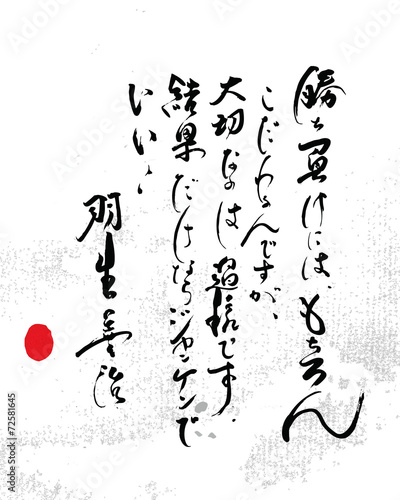 勝ち負けには、もちろん
こだわるんですが、
大切なのは過程です。
結果だけならジャンケンで
いい。
羽生善治
Adobe Stock | #72581645